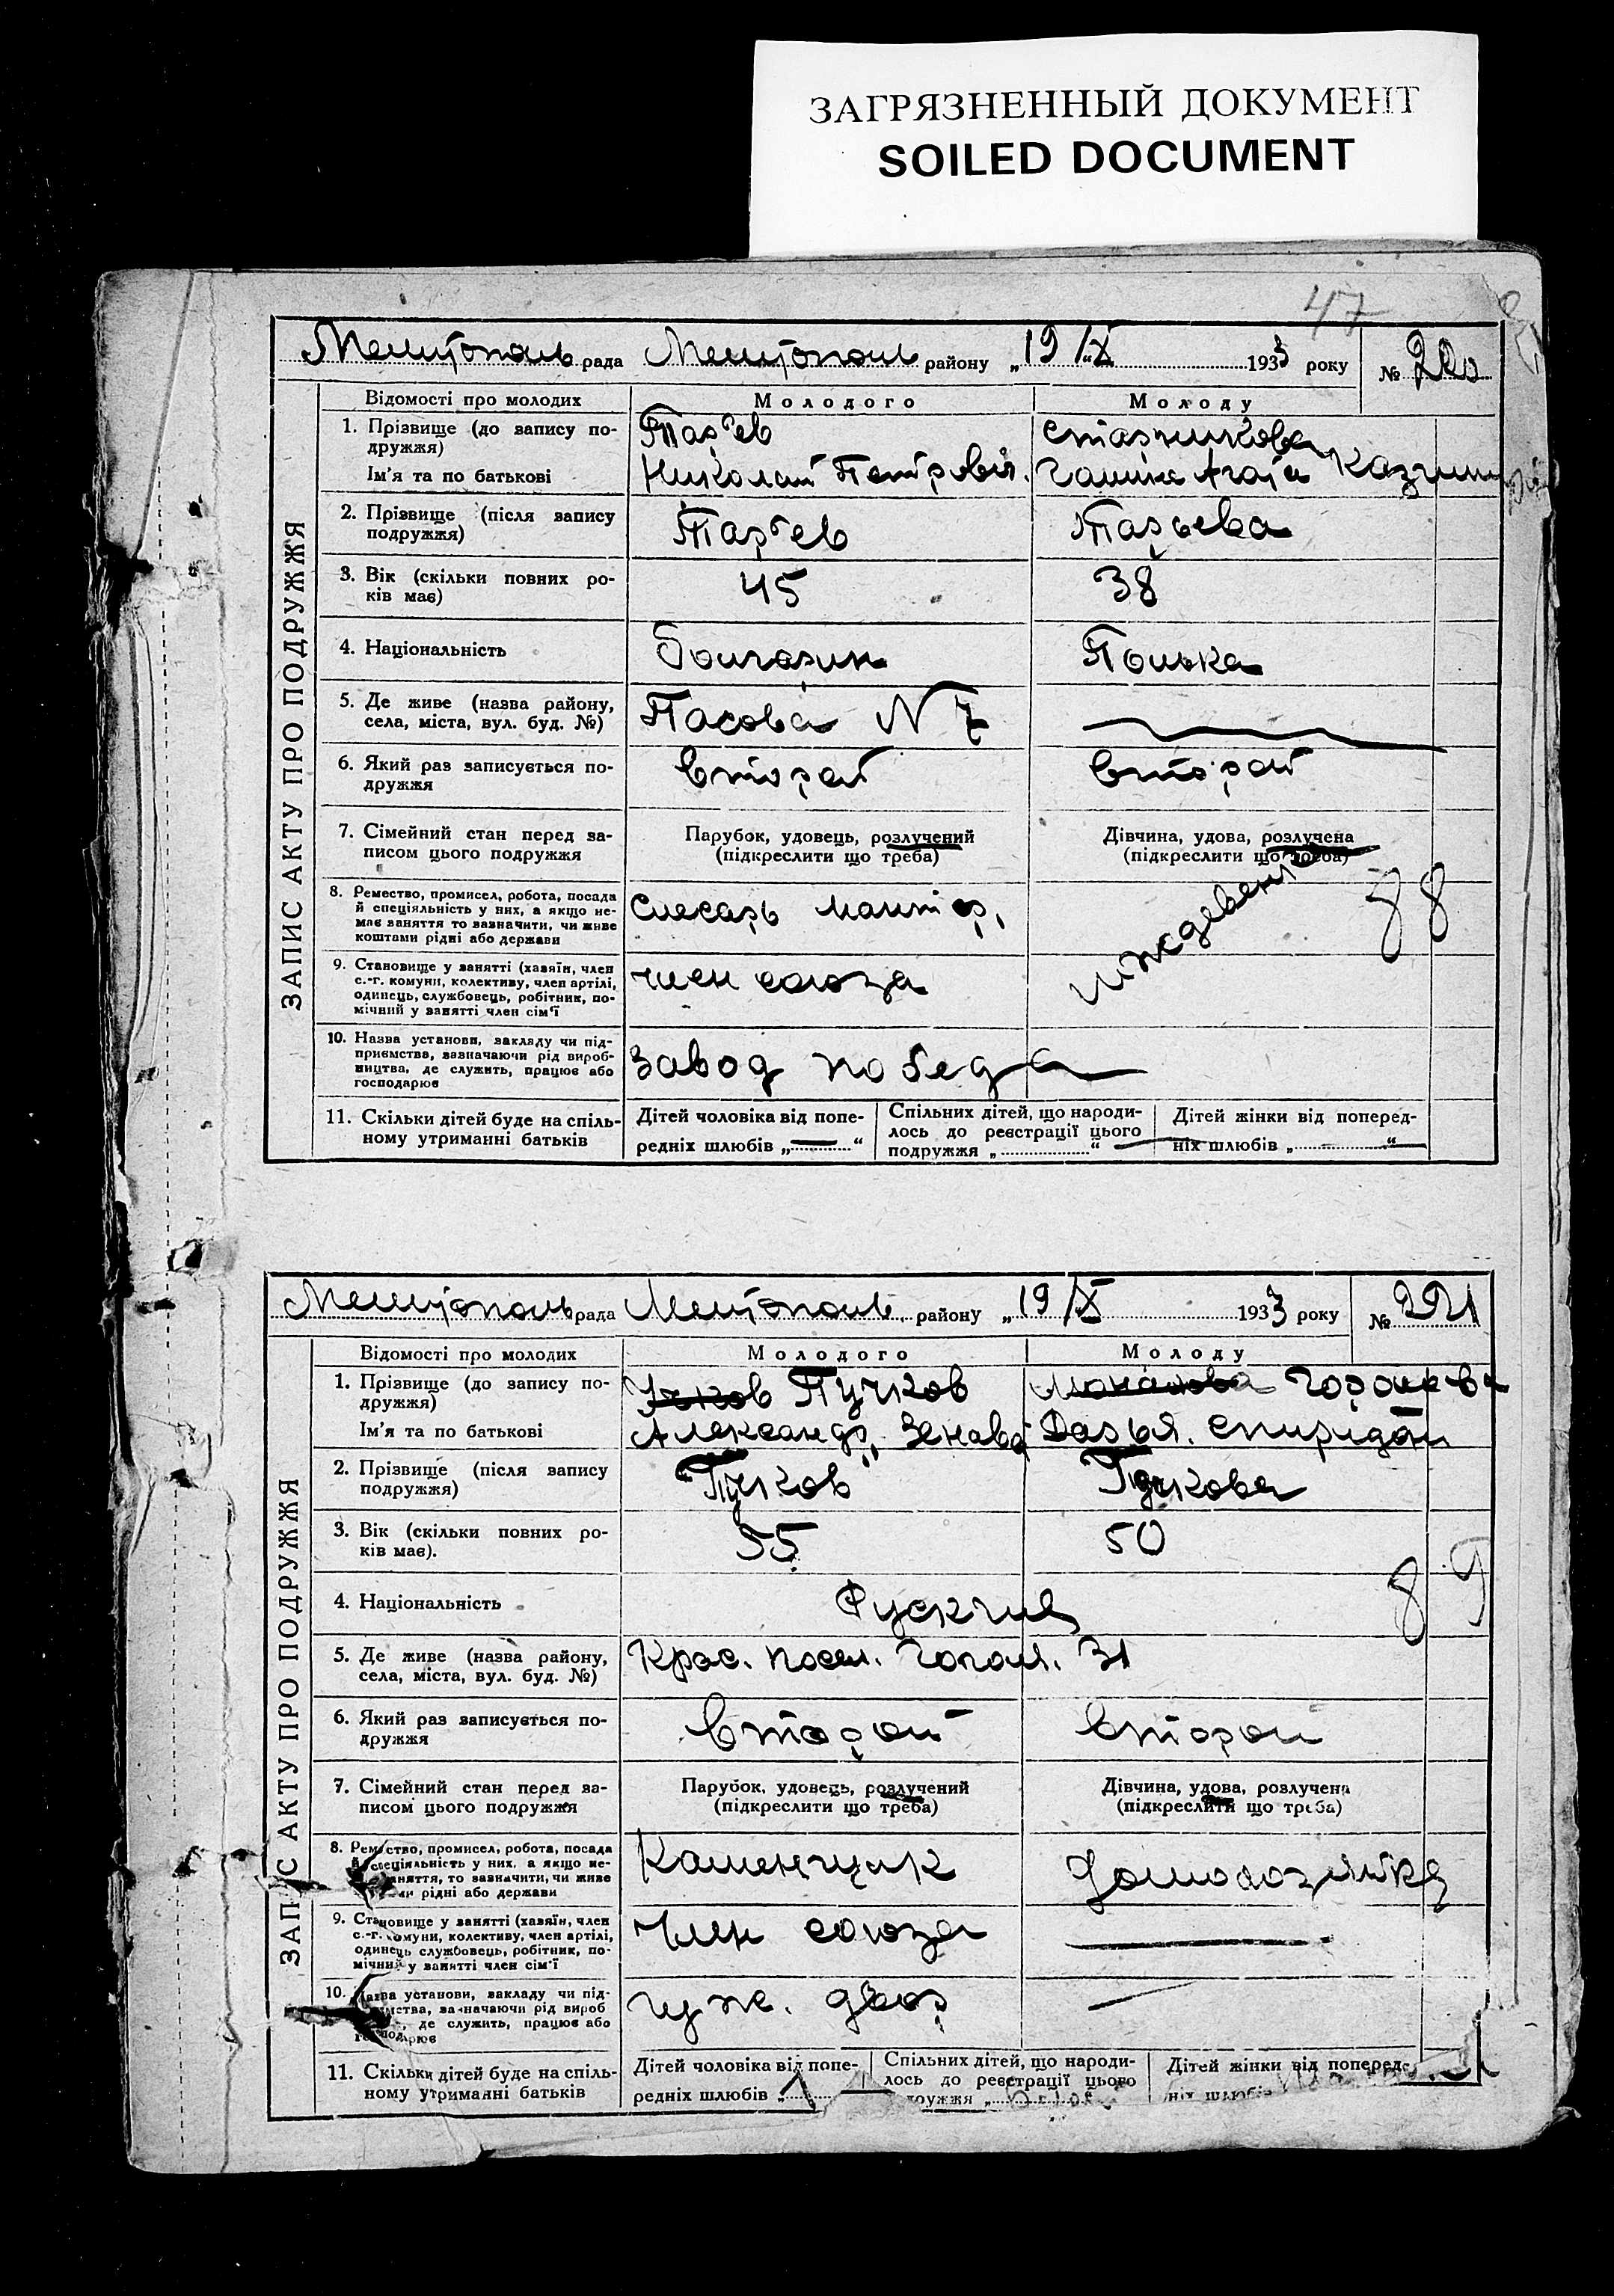 ЗАГРЯЗНЕННЫЙ ДОКУМЕНТ
SOILED DOCUMENT
47
Мелитополь рада Мелитополь району „19 IX 1933 року №
ЗАПИС АКТУ ПРО ПОДРУЖЖЯ
Відомості про молодих Молодого Молоду
1. Прізвище (до запису по-
дружжя)
Ім'я та по батькові
Николай Петрович.
2. Прізвище (після запису
подружжя)
3. Вік (скільки повних ро-
ків має)
45 38
4. Національність
Болгарин Полька
5. Де живе (назва району,
села, міста, вул. буд. №)
N 7
6. Який раз записується по-
дружжя
второй второй
7. Сімейний стан перед за-
писом цього подружжя
Парубок, удовець, розлучений
(підкреслити що треба)
Дівчина, удова, розлучена
(підкреслити що треба)
8. Ремество, промисел, робота, посада
й спеціяльність у них, а якщо не-
має заняття то зазначити, чи живе
коштами рідні або держави
Слесарь монтер,
иждевен
88
9. Становище у занятті (хазяїн, член
с.-г. комуни, колективу, член артілі,
одинець, службовець, робітник, по-
мічний у занятті член сім'ї
член союза
10. Назва установи, закладу чи під-
приємства, зазначаючи рід вироб-
ництва, де служить, працює або
господарює
Завод победа
11. Скільки дітей буде на спіль-
ному утриманні батьків
Дітей чоловіка від попе-
редніх шлюбів „ “
Спільних дітей, що народи-
лось до реєстрації цього
подружжя „ “
Дітей жінки від поперед-
ніх шлюбів „ “
Мелитополь рада Мелитополь району „19 IX 1933 року № 221
ЗАПИС АКТУ ПРО ПОДРУЖЖЯ
Відомості про молодих Молодого Молоду
1. Прізвище (до запису по-
дружжя)
Ім'я та по батькові
Пучков
Александр
Дарья. Спиридон
2. Прізвище (після запису
подружжя)
Пучков Пучкова
3. Вік (скільки повних ро-
ків має).
55 50
4. Національність
Русские
89
5. Де живе (назва району,
села, міста, вул. буд. №)
Крас. посел. Гогол. 31
6. Який раз записується по-
дружжя
второй второй
7. Сімейний стан перед за-
писом цього подружжя
Парубок, удовець, розлучений
(підкреслити що треба)
Дівчина, удова, розлучена
(підкреслити що треба)
8. Ремество, промисел, робота, посада
й спеціяльність у них, а якщо не-
має заняття, то зазначити, чи живе
рідні або держави
Каменщик Домохозяйка
9. Становище у занятті (хазяїн, член
с.-г. комуни, колективу, член артілі,
одинець службовець, робітник, по-
мічний у занятті член сім'ї
Член союза
10. Назва установи, закладу чи під-
зазначаючи рід вироб
де служить, працює або
11. Скільки дітей буде на спіль-
ному утриманні батьків
Дітей чоловіка від попе-
редніх шлюбів „
Спільних дітей, що народи-
лось до реєстрації цього
Дітей жінки від поперед-
ніх шлюбів